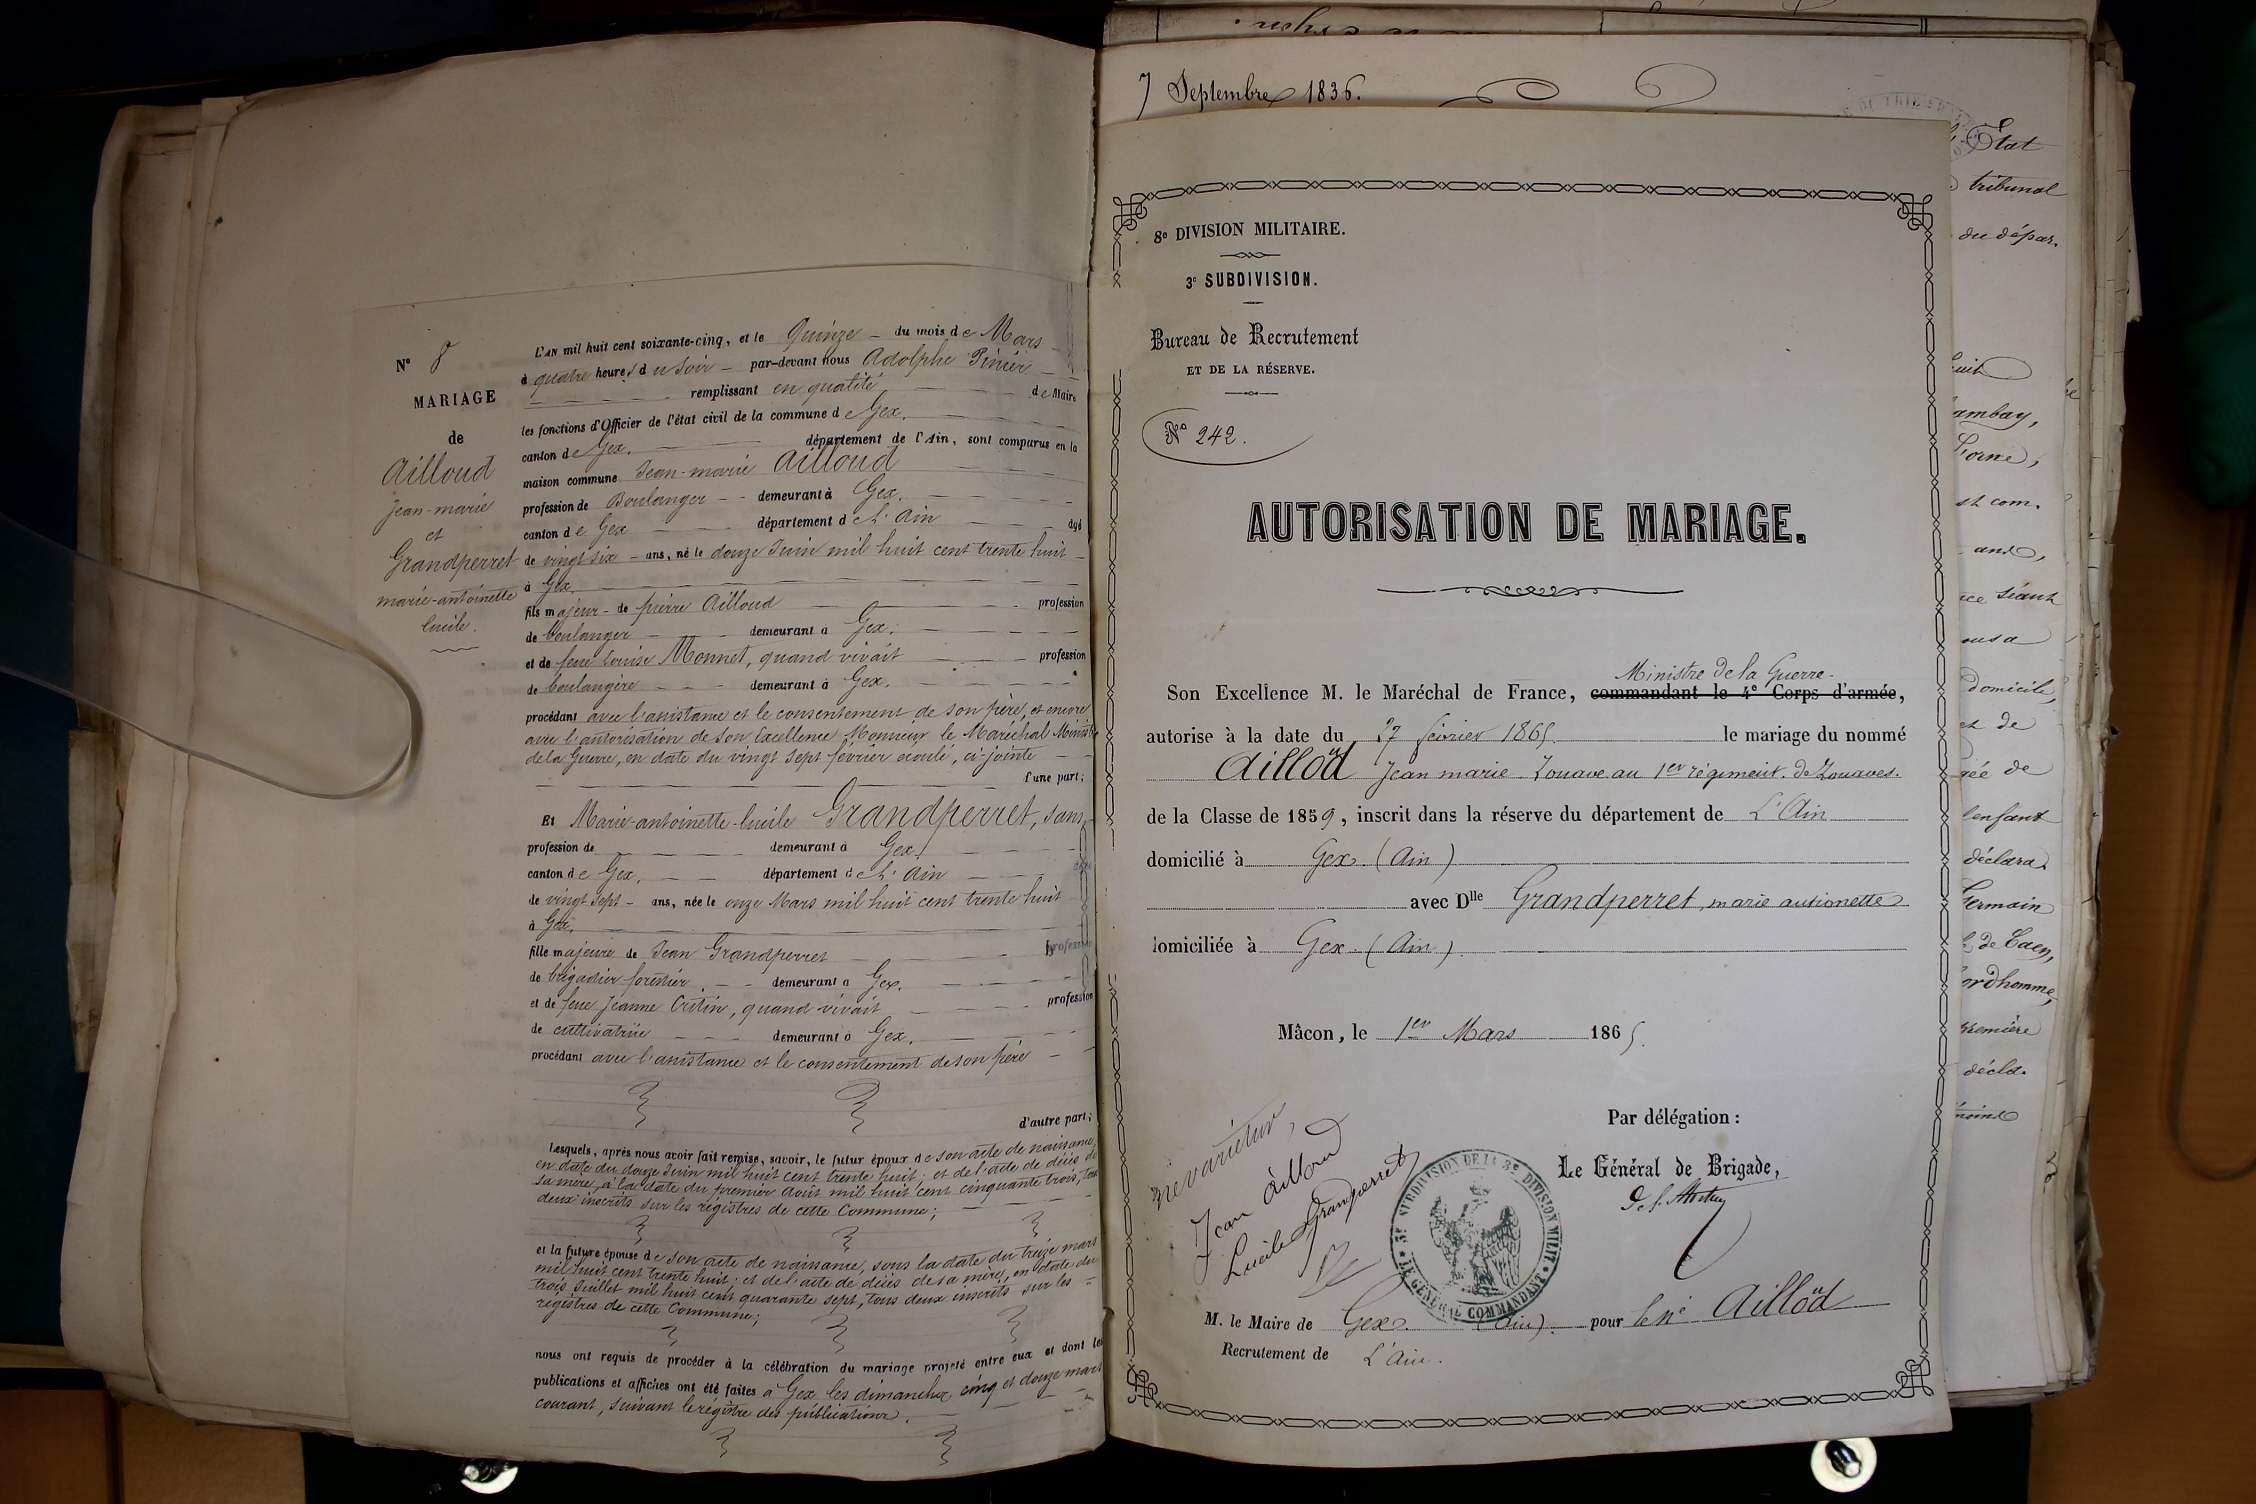 N° 8
MARIAGE
de
Ailloud
Jean-marie
et
Grandperret
marie-antoinette
lucile.
L'AN mil huit cent soixante-cinq, et le Quinze du mois de Mars
à quatre heures du soir par-devant nous Adolphe Pinier
remplissant en qualité de Maire
les fonctions d'Officier de l'état civil de la commune de Gex.
canton de Gex. département de l'Ain, sont comparus en la
maison commune Jean-marie Ailloud
profession de Boulanger demeurant à Gex.
canton de Gex département de l'Ain âgé
de vingt six ans, né le douze Juin mil huit cent trente huit
à Gex.
fils majeur de pierre Ailloud profession
de boulanger demeurant à Gex.
et de feue Louise Monnet, quand vivait profession
de boulangère demeurant à Gex.
procédant avec l'assistance et le consentement de son père, et encore
avec l'autorisation de Son Excellence Monsieur le Maréchal Ministre
de la Guerre, en date du vingt sept février écoulé, ci-jointe
d'une part;
Et Marie-antoinette-lucile Grandperret, sans
profession de demeurant à Gex.
canton de Gex. département de l'Ain
de vingt sept ans, née le onze Mars mil huit cent trente huit
à Gex.
fille majeure de Jean Grandperret profession
de brigadier forestier. demeurant à Gex.
et de feue Jeanne quand vivait profession
de cultivatrice demeurant à Gex.
procédant avec l'assistance et le consentement de son père
d'autre part;
Lesquels, après nous avoir fait remise, savoir, le futur époux de son acte de naissance,
en date du douze Juin mil huit cent trente huit; et de l'acte de décès de
sa mère, à la date du premier août mil huit cent cinquante trois, tous
deux inscrits sur les registres de cette Commune;
et la future épouse de son acte de naissance, sous la date du treize mars
mil huit cent trente huit; et de l'acte de décès de sa mère, en date du
trois Juillet mil huit cent quarante sept, tous deux inscrits sur les
registres de cette Commune;
nous ont requis de procéder à la célébration du mariage projeté entre eux et dont les
publications et affiches ont été faites à Gex les dimanches cinq et douze mars
courant, suivant le registre des publications.
7 Septembre 1836.
8e DIVISION MILITAIRE.
3e SUBDIVISION.
Bureau de Recrutement
ET DE LA RÉSERVE.
N° 242.
AUTORISATION DE MARIAGE.
Ministre de la Guerre
Son Excellence M. le Maréchal de France, commandant le 4e Corps d'armée,
autorise à la date du 27 février 1865 le mariage du nommé
Ailloüd Jean marie Zouave au 1er régiment de Zouaves.
de la Classe de 1859, inscrit dans la réserve du département de L'Ain
domicilié à Gex. (Ain)
avec Dlle Grandperret, marie antionette
domiciliée à Gex. (Ain)
Mâcon, le 1er Mars 1865.
Par délégation :
Le Général de Brigade,
ne varietur,
Jean Ailloud
Lucile Grandperret
3E SUBDIVISION DE LA 8E DIVISION MILIT.
LE GÉNÉRAL COMMANDANT
M. le Maire de Gex. (Ain). pour le né Ailloüd
Recrutement de L'Ain.
État
tribunal
du dépar.
ambay,
l'orne,
st com.
ans,
séant
domicile,
de
de
l'enfant
déclara
Germain
de Caen,
première
décla.